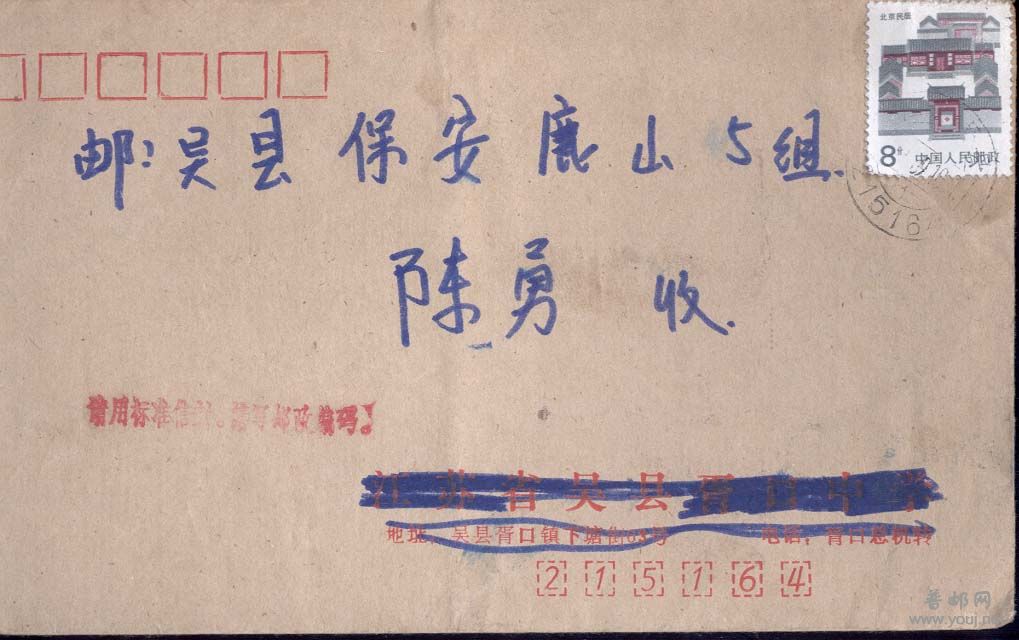 北京民居
8分 中国人民邮政
邮:吴县 保安 鹿山 5组.
1516
陈勇 收.
请用标准信封。填写邮政编码!
江苏省吴县胥口中学
地址:吴县胥口镇下塘街68号 电话:胥口总机转
215164
普邮网
www.youj.ne